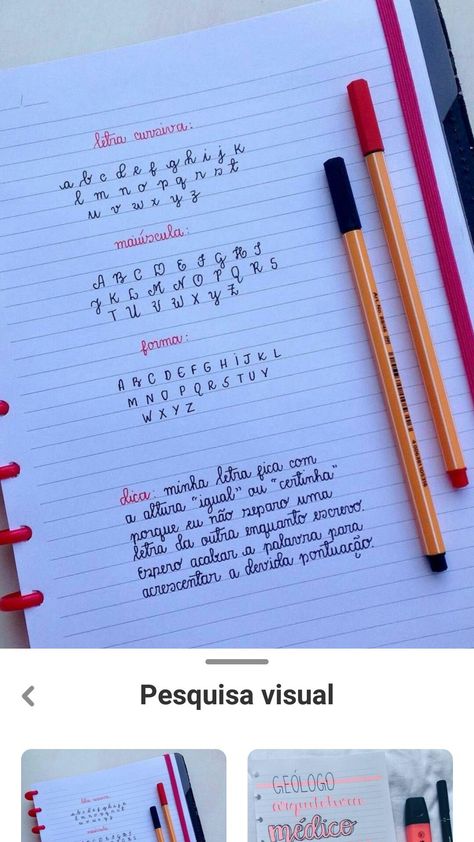 letra cursiva:
a b c d e f g h i j k
l m n o p q r s t
u v w x y z
maiúscula:
A B C D E F G H I
J K L M N O P Q R S
T U V W X Y Z
forma:
A B C D E F G H I J K L
M N O P Q R S T U V
W X Y Z
dica: minha letra fica com
a altura "igual" ou "certinha"
porque eu não separo uma
letra da outra enquanto escrevo.
Espero acabar a palavra para
acrescentar a devida pontuação.
Pesquisa visual
GEÓLOGO
médico